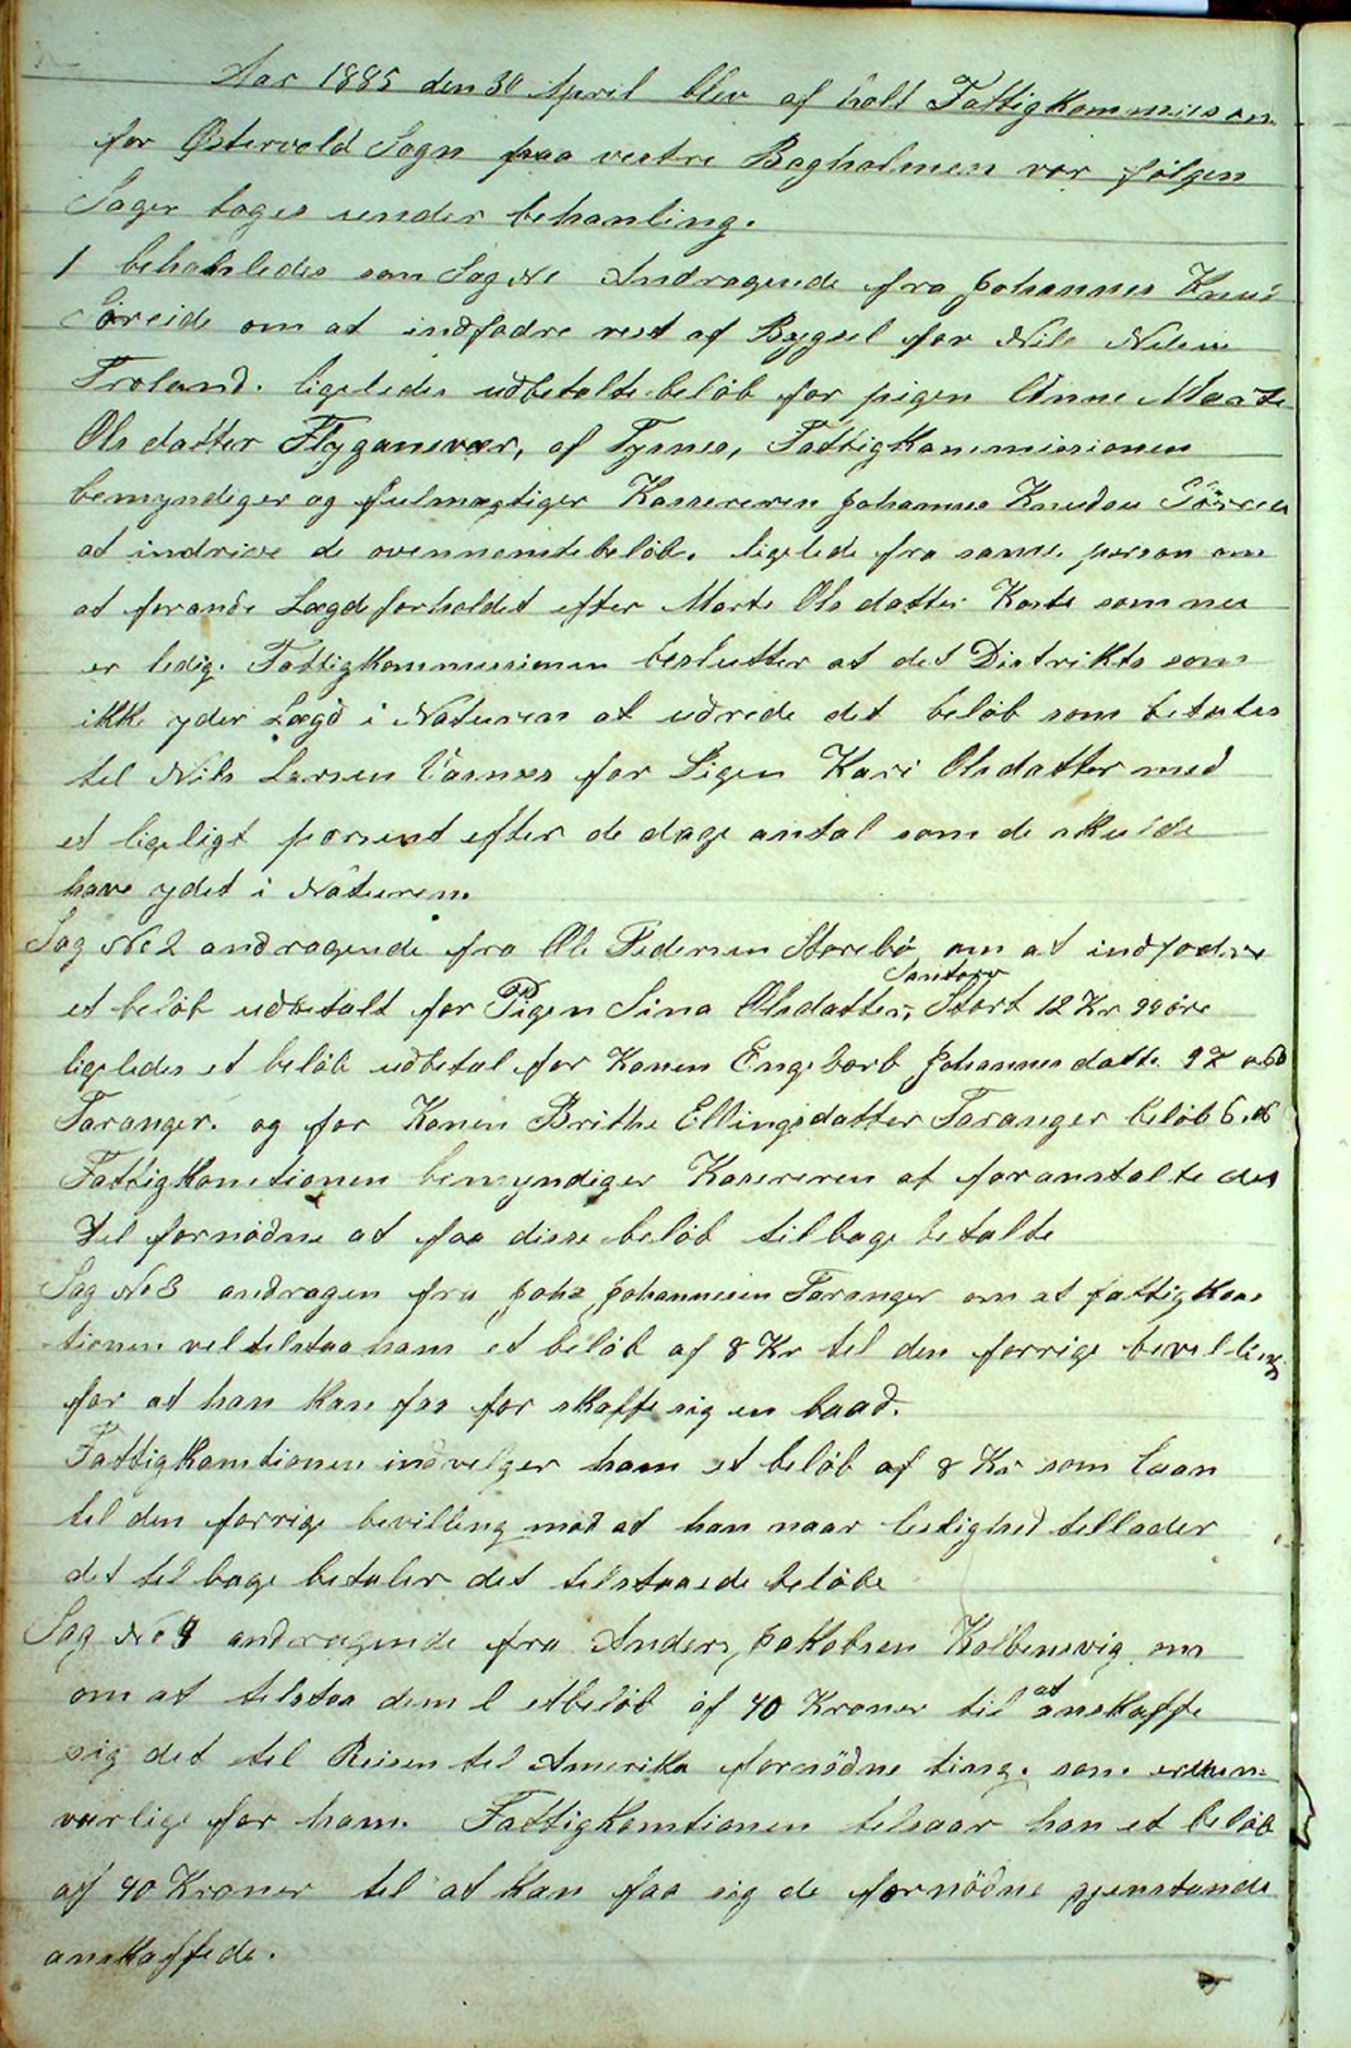 Aar 1885 den 30 April blev af holt Fattigkommisson
for Østervold Sogn paa vestre Bagholmen vor følgen
Sager toges under behanling.
1 behahnledes som Sag No 1 Andragende fra Johannes Knud
Søreide om at indfodre rest af Bygsel for Nils Nilsen
Troland. ligeledes udbetalte beløb for pigen Anne Marte
Ols datter Flyganevær, af Tysnes, Fattigkommissionen
bemyndiger og fulmagtiger Kassereren Johannes Knudsen
at indrive de ovennemte beløb. ligelede fra same person om
at forande Lægdeforholdet efter Marte Ols datter som nu
er ledig. Fattigkommissionen beslutter at det Distrikts som
ikke yder Lægd i Naturen at udrede det beløb som betales
til Nils Larsen for Pigen Kari Olsdatter med
et ligeligt porsent efter de dage antal som de skulde
have ydet i Naturen.
Sag No 2 andragende fra Ole Pedersen Storebø om at indfodre
Santorv
et beløb udbetalt for Pigen Sina Olsdatter, Stort 12 Kr 99 öre
ligeledes et beløb udbetal for Konen Engeborb Johannes datte
Taranger. og for Konen Brithe Ellingsdatter Taranger beløb
Fattigkomtionen bemyndiger Kasereren at foranstalte det
til fornødne at faa disse beløb tilbage betalte
Sag No 3 andragen fra Johs Johannesen Taranger om at fattigkom
tionen vel telstaa ham et beløb af 8 Kr til den forrige bevelling
for at han kan faa for skaffe sig en baad.
Fattigkomtionen indvelger ham et beløb af 8 Kr som laan
tel den forrige bevilling mod at han naar leilighed tellader
det tel bage betaler det telstaaede beløbe
Sag No 4 andragende fra Anders Jakobsen Kolbensvig om
om at telstaa dem l et beløb af 40 Kroner til at anskaffe
sig det tel Reisen tel Amerika fornødne ting. som er uun-
værlige for ham. Fattigkomtionen telsaar han et beløb
af 40 Kroner tel at kan faa sig de fornödne gjenstande
anskaffede.